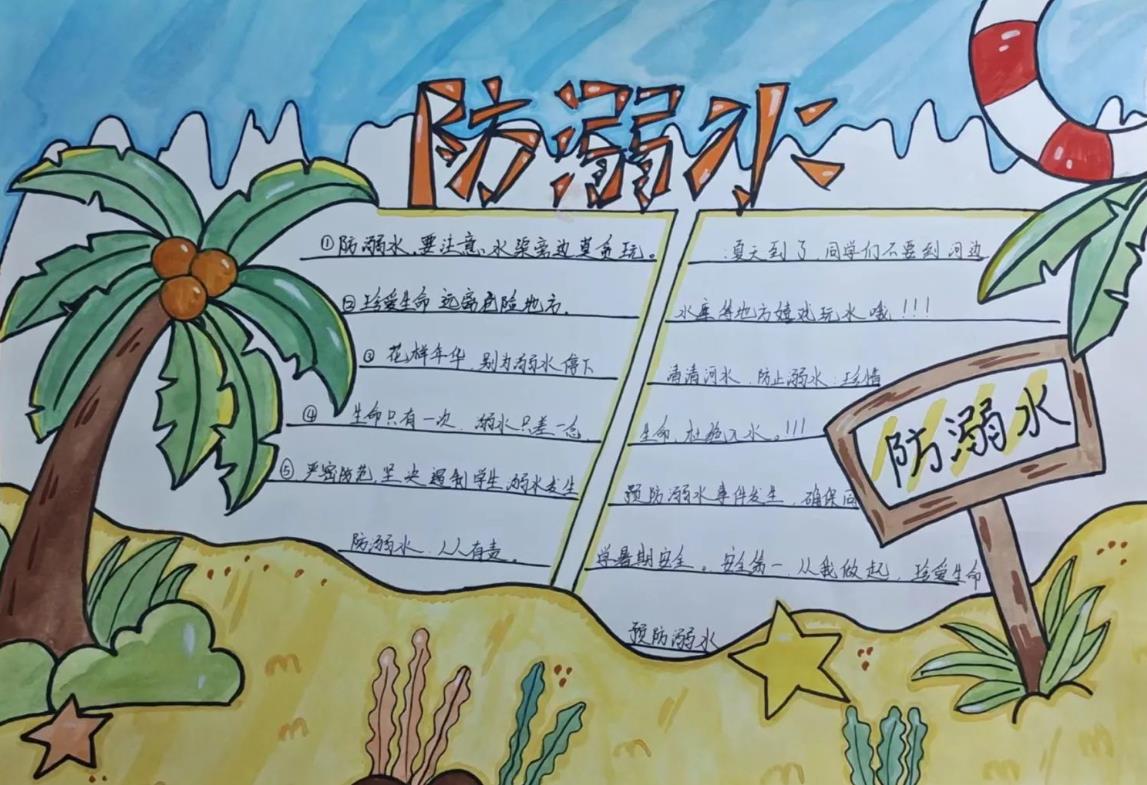 防溺水
①防溺水,要注意,水渠旁边莫贪玩。
②珍爱生命 远离危险地方.
③ 花样年华,别为溺水停下
④ 生命只有一次,溺水只差一念
⑤ 严密防范,坚决遏制学生溺水发生
防溺水,人人有责。
夏天到了,同学们不要到河边
水库等地方嬉戏玩水哦!!!
清清河水,防止溺水:珍惜
生命,杜绝入水。!!!
预防溺水事件发生,确保同
学暑期安全。安全第一,从我做起,珍爱生命
预防溺水
防溺水